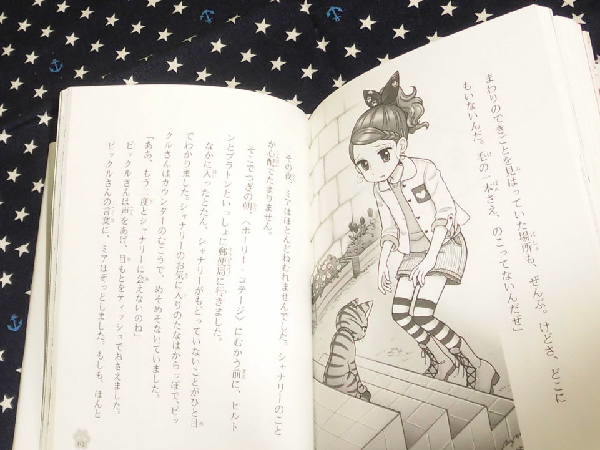 まわりのできごとを見はっていた場所も、ぜんぶ。けどさ、どこに
もいないんだ。毛の一本さえ、のこってないんだぜ」
その夜、ミアはほとんどねむれませんでした。シャナリーのこと
が心配でたまりません。
そこでつぎの朝、〈ホーリー・コテージ〉にむかう前に、ヒルト
ンとプラトンといっしょに郵便局に行きました。
なかに入ったとたん、シャナリーがもどっていないことがひと目
でわかりました。シャナリーのお気に入りのたなはからっぽで、ピッ
クルさんはカウンターのむこうで、めそめそないていました。
「ああ、もう二度とシャナリーに会えないのね」
ピックルさんは声をあげ、目もとをティッシュでおさえました。
ピックルさんの言葉に、ミアはぞっとしました。もしも、ほんと